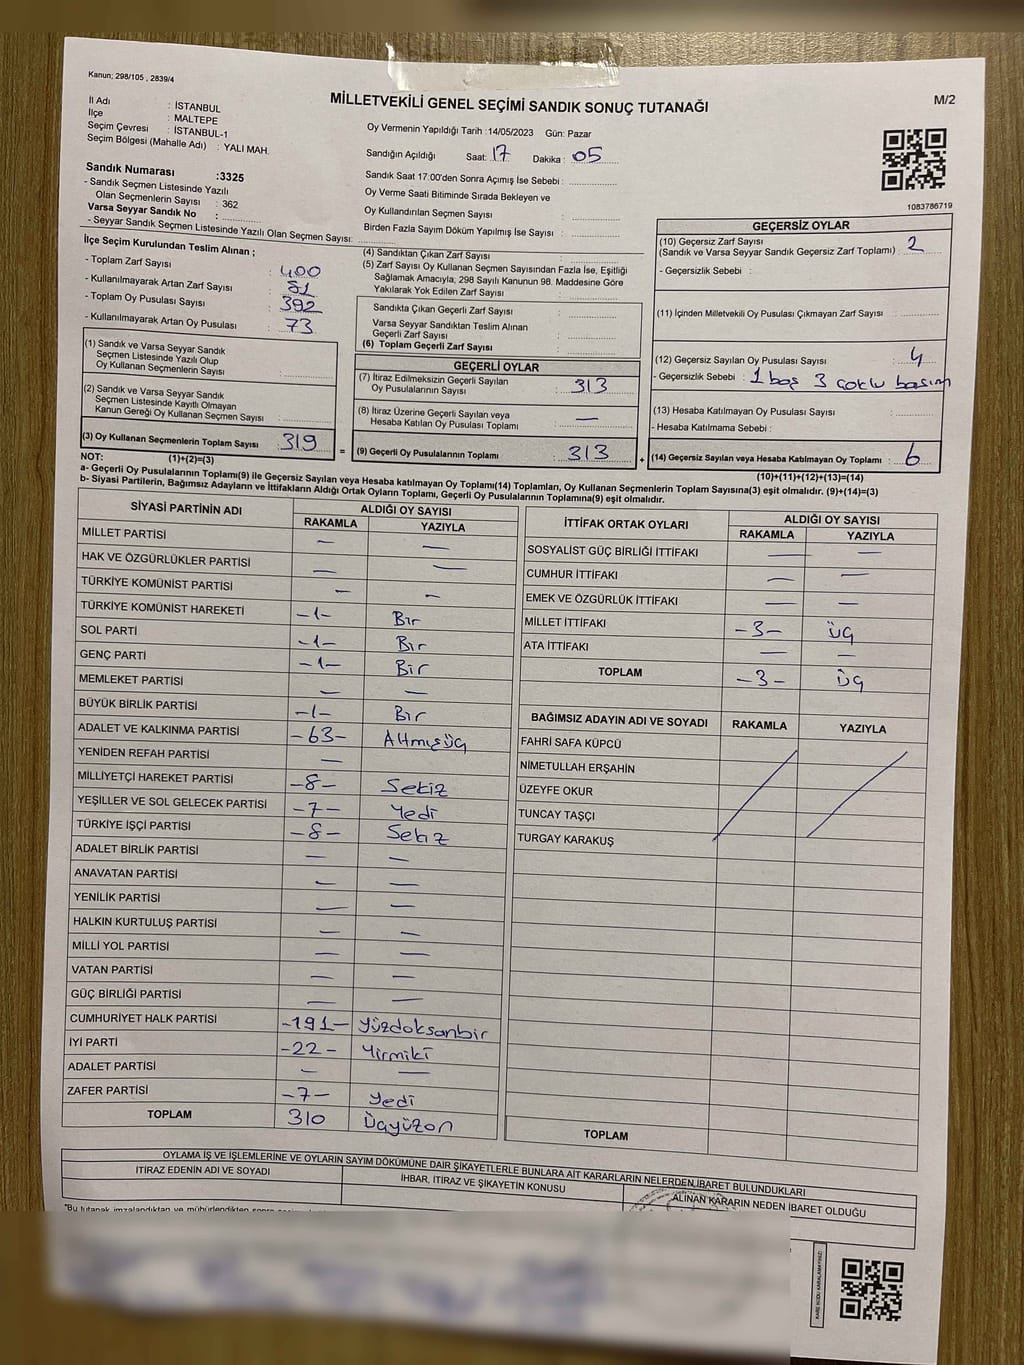 Kanun; 298/105 , 2839/4
MİLLETVEKİLİ GENEL SEÇİMİ SANDIK SONUÇ TUTANAĞI
M/2
İl Adı : İSTANBUL
İlçe : MALTEPE
Seçim Çevresi : İSTANBUL-1
Seçim Bölgesi (Mahalle Adı) : YALI MAH.
Sandık Numarası :3325
- Sandık Seçmen Listesinde Yazılı
Olan Seçmenlerin Sayısı : 362
Varsa Seyyar Sandık No :
- Seyyar Sandık Seçmen Listesinde Yazılı Olan Seçmen Sayısı:
Oy Vermenin Yapıldığı Tarih :14/05/2023 Gün: Pazar
Sandığın Açıldığı Saat: 17 Dakika : 05
Sandık Saat 17:00'den Sonra Açımış İse Sebebi :
Oy Verme Saati Bitiminde Sırada Bekleyen ve
Oy Kullandırılan Seçmen Sayısı :
Birden Fazla Sayım Döküm Yapılmış İse Sayısı :
1083786719
İlçe Seçim Kurulundan Teslim Alınan ;
- Toplam Zarf Sayısı : 400
- Kullanılmayarak Artan Zarf Sayısı : 81
- Toplam Oy Pusulası Sayısı : 392
- Kullanılmayarak Artan Oy Pusulası : 73
(1) Sandık ve Varsa Seyyar Sandık
Seçmen Listesinde Yazılı Olup
Oy Kullanan Seçmenlerin Sayısı :
(2) Sandık ve Varsa Seyyar Sandık
Seçmen Listesinde Kayıtlı Olmayan
Kanun Gereği Oy Kullanan Seçmen Sayısı :
(3) Oy Kullanan Seçmenlerin Toplam Sayısı : 319
(1)+(2)=(3)
(4) Sandıktan Çıkan Zarf Sayısı :
(5) Zarf Sayısı Oy Kullanan Seçmen Sayısından Fazla İse, Eşitliği
Sağlamak Amacıyla, 298 Sayılı Kanunun 98. Maddesine Göre
Yakılarak Yok Edilen Zarf Sayısı :
Sandıkta Çıkan Geçerli Zarf Sayısı :
Varsa Seyyar Sandıktan Teslim Alınan
Geçerli Zarf Sayısı :
(6) Toplam Geçerli Zarf Sayısı :
GEÇERLİ OYLAR
(7) İtiraz Edilmeksizin Geçerli Sayılan
Oy Pusulalarının Sayısı : 313
(8) İtiraz Üzerine Geçerli Sayılan veya
Hesaba Katılan Oy Pusulası Toplamı : —
= (9) Geçerli Oy Pusulalarının Toplamı : 313 +
GEÇERSİZ OYLAR
(10) Geçersiz Zarf Sayısı
(Sandık ve Varsa Seyyar Sandık Geçersiz Zarf Toplamı) : 2
- Geçersizlik Sebebi :
(11) İçinden Milletvekili Oy Pusulası Çıkmayan Zarf Sayısı :
(12) Geçersiz Sayılan Oy Pusulası Sayısı : 4
- Geçersizlik Sebebi : 1 boş 3 çoklu basım
(13) Hesaba Katılmayan Oy Pusulası Sayısı :
- Hesaba Katılmama Sebebi :
(14) Geçersiz Sayılan veya Hesaba Katılmayan Oy Toplamı : 6
(10)+(11)+(12)+(13)=(14)
NOT:
a- Geçerli Oy Pusulalarının Toplamı(9) ile Geçersiz Sayılan veya Hesaba katılmayan Oy Toplamı(14) Toplamları, Oy Kullanan Seçmenlerin Toplam Sayısına(3) eşit olmalıdır. (9)+(14)=(3)
b- Siyasi Partilerin, Bağımsız Adayların ve İttifakların Aldığı Ortak Oyların Toplamı, Geçerli Oy Pusulalarının Toplamına(9) eşit olmalıdır.
SİYASİ PARTİNİN ADI ALDIĞI OY SAYISI
RAKAMLA YAZIYLA
MİLLET PARTİSİ — —
HAK VE ÖZGÜRLÜKLER PARTİSİ — —
TÜRKİYE KOMÜNİST PARTİSİ — —
TÜRKİYE KOMÜNİST HAREKETİ -1- Bir
SOL PARTİ -1- Bir
GENÇ PARTİ -1- Bir
MEMLEKET PARTİSİ — —
BÜYÜK BİRLİK PARTİSİ -1- Bir
ADALET VE KALKINMA PARTİSİ -63- Altmışüç
YENİDEN REFAH PARTİSİ —
MİLLİYETÇİ HAREKET PARTİSİ -8- Sekiz
YEŞİLLER VE SOL GELECEK PARTİSİ -7- Yedi
TÜRKİYE İŞÇİ PARTİSİ -8- Sekiz
ADALET BİRLİK PARTİSİ — —
ANAVATAN PARTİSİ — —
YENİLİK PARTİSİ — —
HALKIN KURTULUŞ PARTİSİ — —
MİLLİ YOL PARTİSİ — —
VATAN PARTİSİ — —
GÜÇ BİRLİĞİ PARTİSİ — —
CUMHURİYET HALK PARTİSİ -191- Yüzdoksanbir
İYİ PARTİ -22- Yirmiki
ADALET PARTİSİ — —
ZAFER PARTİSİ -7- Yedi
TOPLAM 310 Üçyüzon
İTTİFAK ORTAK OYLARI ALDIĞI OY SAYISI
RAKAMLA YAZIYLA
SOSYALİST GÜÇ BİRLİĞİ İTTİFAKI — —
CUMHUR İTTİFAKI — —
EMEK VE ÖZGÜRLÜK İTTİFAKI — —
MİLLET İTTİFAKI -3- Üç
ATA İTTİFAKI — —
TOPLAM -3- Üç
BAĞIMSIZ ADAYIN ADI VE SOYADI RAKAMLA YAZIYLA
FAHRİ SAFA KÜPCÜ
NİMETULLAH ERŞAHİN
ÜZEYFE OKUR
TUNCAY TAŞÇI
TURGAY KARAKUŞ
TOPLAM
OYLAMA İŞ VE İŞLEMLERİNE VE OYLARIN SAYIM DÖKÜMÜNE DAİR ŞİKAYETLERLE BUNLARA AİT KARARLARIN NELERDEN İBARET BULUNDUKLARI
İTİRAZ EDENİN ADI VE SOYADI İHBAR, İTİRAZ VE ŞİKAYETİN KONUSU ALINAN KARARIN NEDEN İBARET OLDUĞU
"Bu tutanak imzalandıktan ve mühürlendikten sonra